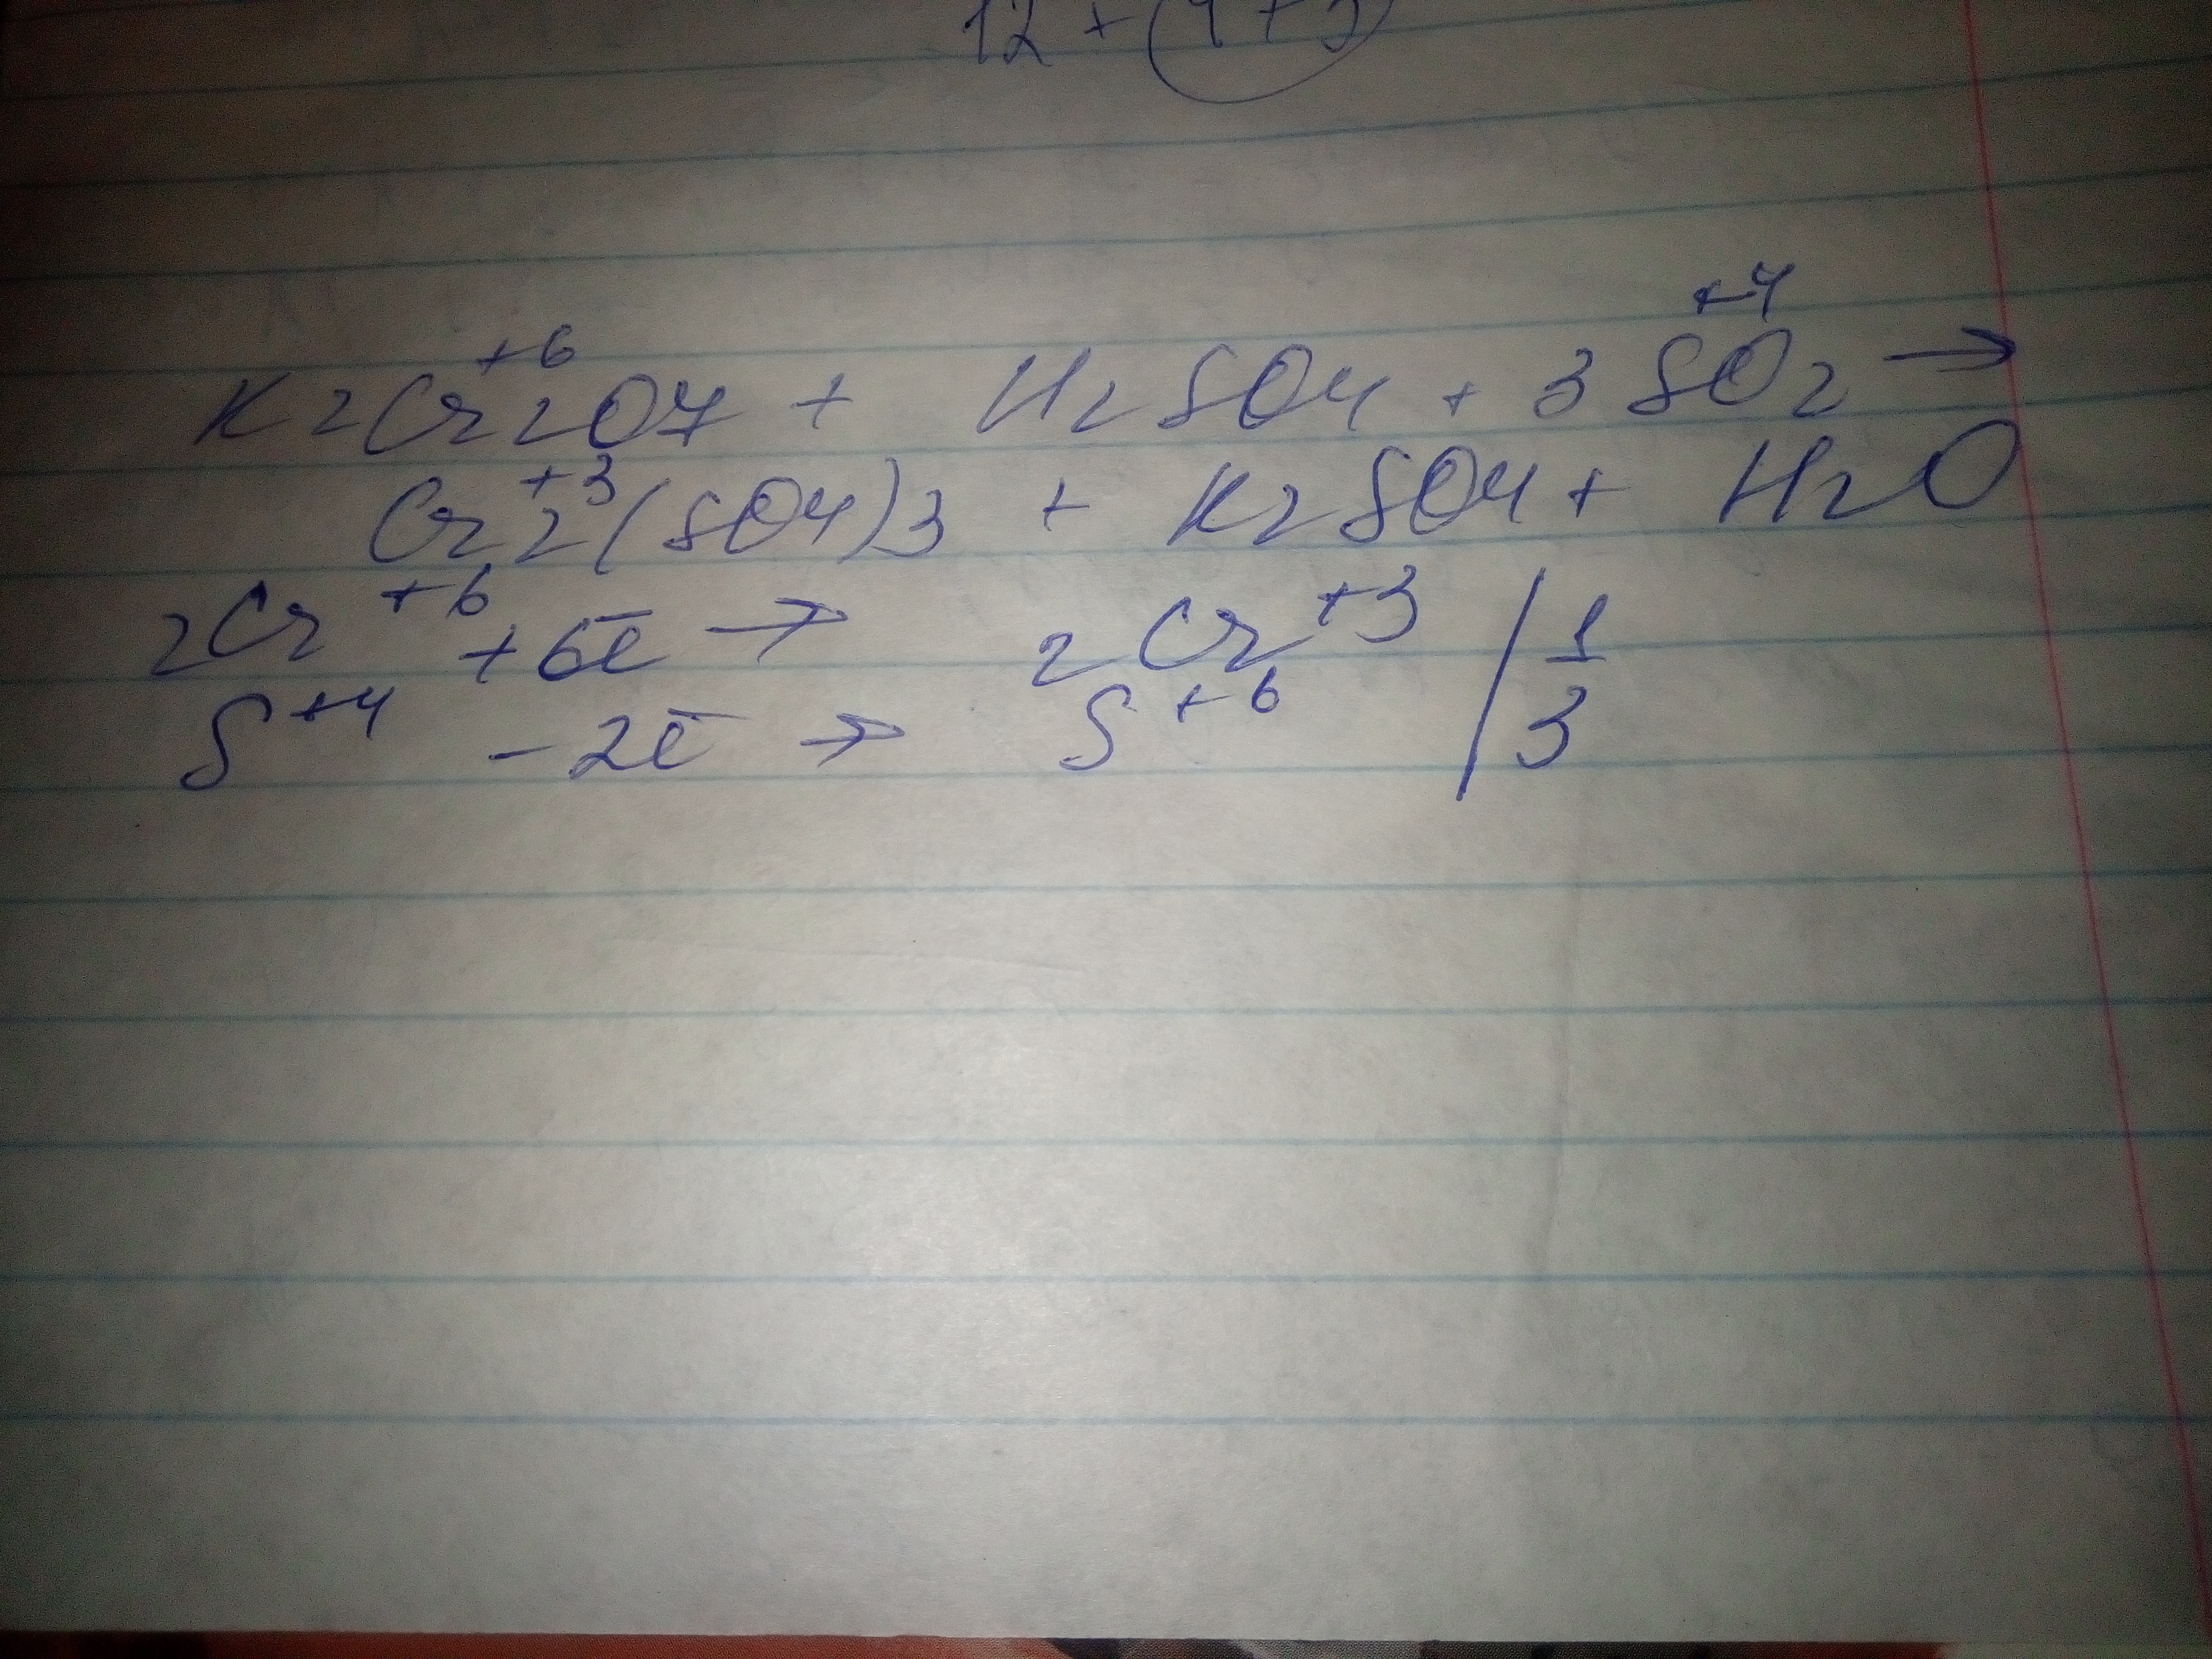 12 + (4 + 3
K2Cr2O7 + H2SO4 + 3SO2 →
+6 +4
Cr2(SO4)3 + K2SO4 + H2O
+3
2Cr+6 + 6ē → 2Cr+3 | 1
S+4 - 2ē → S+6 | 3